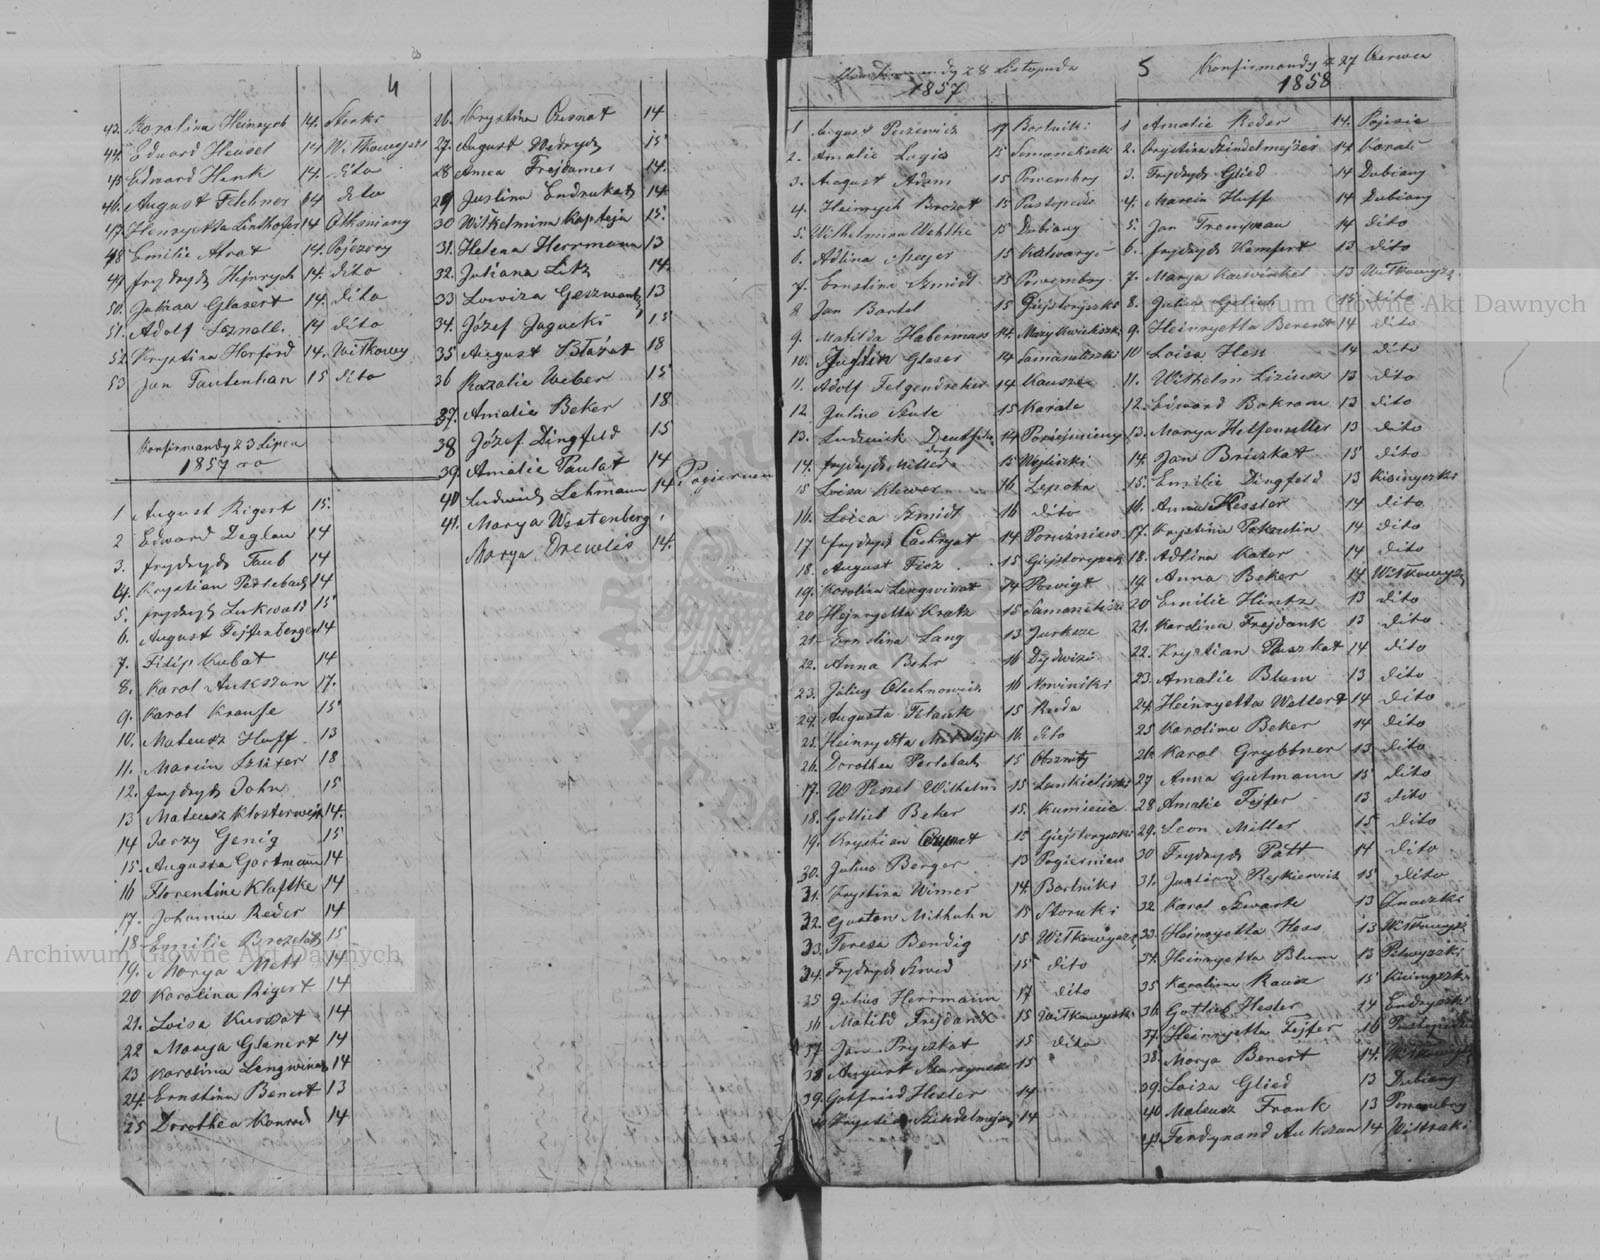 4
43. Karolina Heinrych 14. Storki
44. Eduard Heusel 14 Wiłkowyszki
45 Edward Henk 14. dito
46. August Felchner 14 dito
47. Henryetta Linthofer 14 Olksniany
48 Emilie Abrat 14. Pojezory
49 frydrych Hejnrych 14. dito
50. Juliana Glasert 14. dito
51. Adolf 14 dito
52 Krystina Herford 14. Wiłkowy
53 Jan Tautenhan 15 dito
Konfirmandy 23 Lipca
1857 ro
1 August Rigert 15.
2 Edward Deglau 14
3. frydrych Taub 14
4. Krystian Perlebach 14
5. frydrych Lukwald 15
6. August Fejfenberger 14
7. Filip Kubat 14
8. Karol Aukszun 17.
9. Karol Krause 15
10. Mateusz Huff 13
11. Marcin 18
12. frydrych John 15
13 Mateusz Klosterwejt 14.
14 Jerzy Genig 15
15. Augusta Gortmann 14
16 Florentine Klaftke 14
17. Johanna Reder 14
18 Emilie 15
19. Marya Mett 14
20 Karolina Rigert 14
21. Loisa Kurszat 14
22 Marya Glanert 14
23 Karolina Lengwinat 14
24. Ernstina Benert 13
25 Dorothea Konrad 14
26. Krystina 14
27. August Hedrych 15
28 Amea Frejdamer 14.
29 Justina Endrukat 14.
30 Wilhelmina Kapteja 15.
31. Helena Herrmann 13
32. Juliana Litz 14.
33 Lowiza Geszwantz 13
34. Józef Jagucki 15
35 August Błażat 18
36 Rozalie Weber 15
37. Amalie Beker 18
38 Józef Dingfeld 15
39. Amalie Paulat 14
40 Ludwich Lehmann 14 Pogiernew
41. Marya Westenberg
Marya Drewlis 14.
Konfirmandy 28 Listopada
1857
1 August 17 Bartniki
2. Amalie Lagis 15 Simaneliszki
3. August Adam 15 Powembry
4. Heinrych Brozat 15 Pustopedzie
5. Wilhelmina Wehlke 15 Dubiany
6. Adlina Majer 15 Kalwarya
7. Ernstina Szmidt 15 Powembry
8 Jan Bartel 15 Giejstoryszki
9. Matilda Haberman 14.
10. Justin Glaser 14 Samaneliszki
11. Adolf Felgendreher 14 Kausze
12 Julius Szulc 15 Karale
13. Ludwick 14 Powiejuniewy
14. frydrych Miller 15 Wojliszki
15 Loisa Kliwer 16 Lepota
16. Loisa Szmidt 16 dito
17 frydrych Cachrat 14 Poruzniew
18. August Ficz 15 Giejstoryszki
19. Karolina Lengwinat 14 Powigt
20 Hejnryetta Kratz 15 Samaneliszki
21. Ernstina Lang 13 Jurksze
22. Anna Bohr 16 Dydwizi
23. Julius Olechnowicz 16 Nowiniki
24. Augusta Flauk 15 Ruda
25. Heinryetta 16 dito
26. Dorothea Perlebach 15 Obszruty
17. W Peszel Wilhelm 15 Lankieliszki
18. Gottlieb Beker 15. Kumiecie
19. Krystian 15 Giejstoryszki
30. Julius Berger 13 Pogierniew
31. Krystina Wimer 14 Bartniki
32. Gustav Mithuhn 15 Storuki
33. Teresa Bendig 15 Wiłkowyszki
34. Frydrych Szwed 15 dito
35 Julius Herrmann 17 dito
36 Matild Frejdank 15 Wiłkowyszki
37 Jan Pryczkat 15 dito
38 August 15
39. Gotfried Hester 14
Krystian Szindelmejzer 14
5 Konfirmandy z 27 Czerwca
1858
1 Amalie Reder 14. Pojezie
2. Krystina Szindelmejzer 14 Karale
3. Frydrych Glied 14 Dubiany
4. Marcin Huff 14 Dubiany
5. Jan 14 dito
6. frydrych Kemfert 13 dito
7. Marya Karwinkel 13 Wiłkowyszki
8. Julia Gerlich 15 dito
9. Heinryetta Berendt 14 dito
10 Loisa Hess 14 dito
11. Wilhelm Lizius 13 dito
12. Edward Bakram 13 dito
13. Marya Helfenseller 13 dito
14. Jan Briczkat 15 dito
15. Emilie Dingfeld 13 Kisinyszki
16. Anna Hesster 14 dito
17. Krystina 14 dito
18. Adlina Kater 14 dito
19. Anna Beker 14 Wiłkowyszki
20 Emilie Hintz 13 dito
21. Karolina Frejdank 13 dito
22. Krystian Pluszkat 14 dito
23. Amalie Blum 13 dito
24. Heinryetta Wallert 14 dito
25 Karolina Beker 14 dito
26. Karol Grybbner 13 dito
27 Anna Gutmann 15 dito
28 Amalie Fejfer 13 dito
29. Leon Miller 15 dito
30 Frydrych Patt 14 dito
31. Justina Rejkiewicz 15 dito
32 Karol Szwark 13
33. Heinryetta Hess 13 Wiłkowyszki
34. Heinryetta Blum 13
35 Karolina 15 Kisinyszki
36. Gottlieb Hester 14
37. Heinryetta Fejfer 16
38. Marya Benert 14. Wiłkowyszki
39. Loiza Glied 13 Dubiany
40 Mateusz Frank 13 Powembry
41. Ferdynand Aukszun 14 Wistraki
Archiwum Główne Akt Dawnych
Archiwum Główne Akt Dawnych